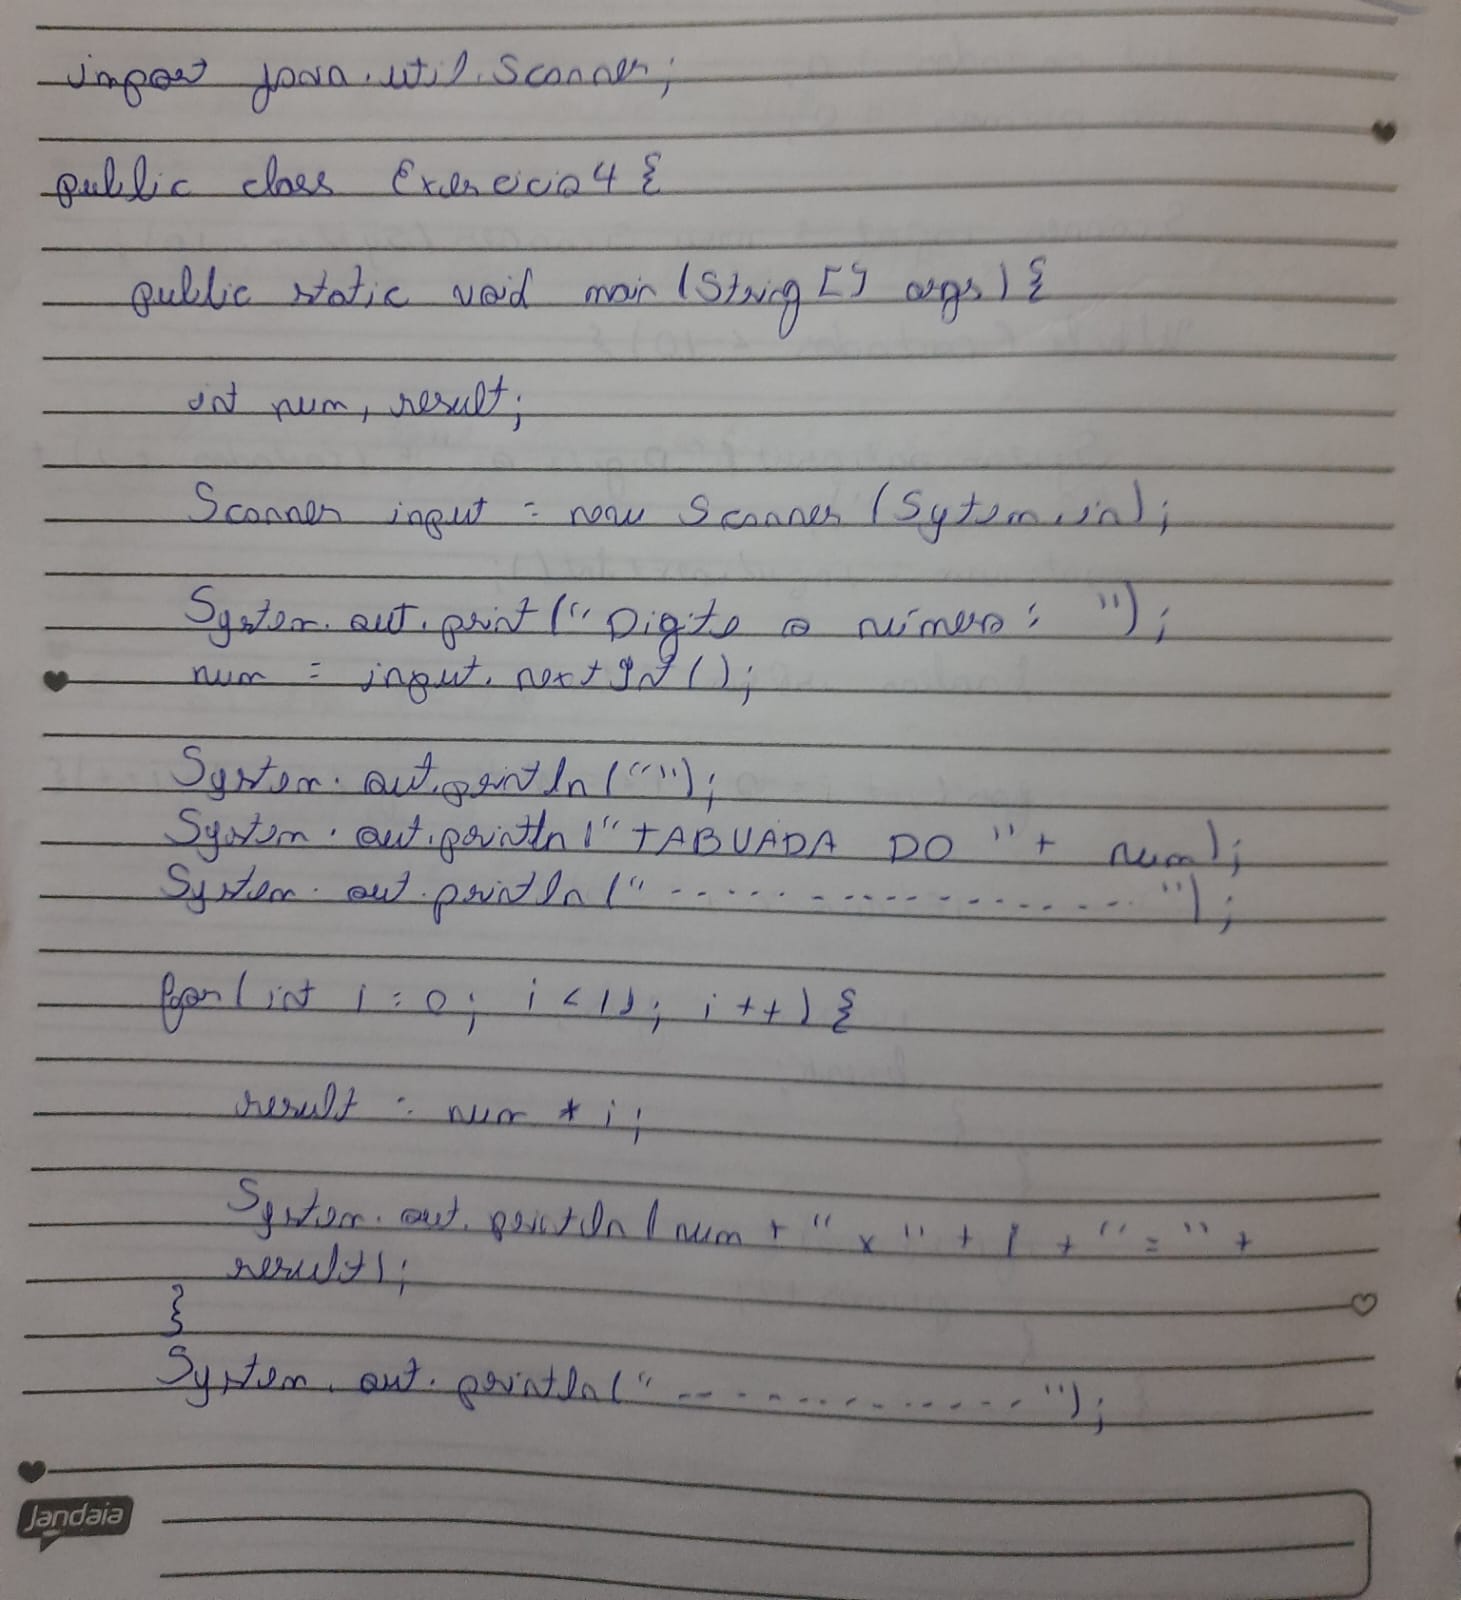 import java.util.Scanner;
public class Exercicio4 {
public static void main (String [] args) {
int num, result;
Scanner input = new Scanner (Sytem.in);
System.out.print (" Digite o número: ");
num = input.nextInt ();
System.out.println ("");
System.out.println (" TABUADA DO " + num);
System.out.println (" - - - - - - - - - - - - - - - - - ");
for (int i = 0; i < 11; i ++) {
result = num * i;
System.out.println (num + " x " + i + " = " +
result);
}
System.out.println (" - - - - - - - - - - - - - - ");
Jandaia